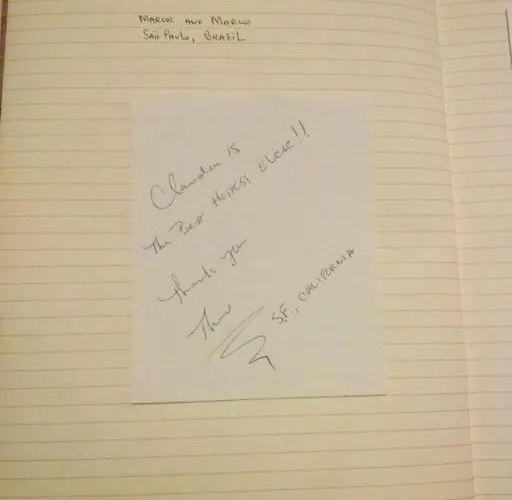 Marcus and Marcus
São Paulo, Brazil
is
The Best Hostess Ever!!
Thank you
S.F., California